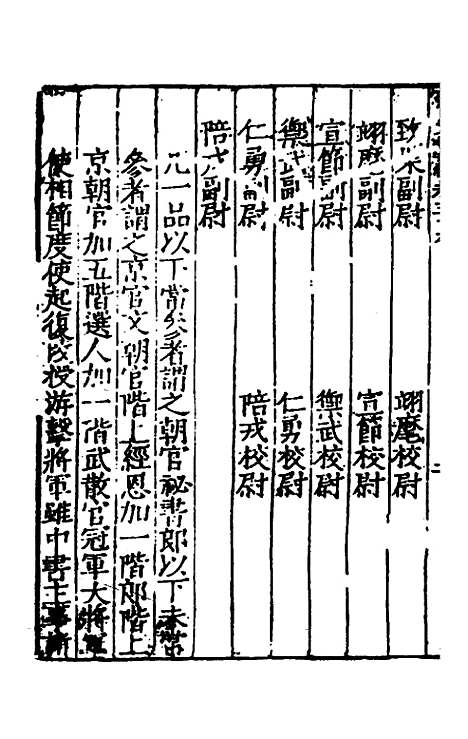 致果副尉 翊麾校尉
翊麾副尉 宣節校尉
宣節副尉 禦武校尉
禦武副尉 仁勇校尉
仁勇副尉 陪戎校尉
陪戎副尉
凡一品以下常參者謂之朝官祕書郎以下未常
參者謂之京官文朝官階上經恩加一階郎階上
京朝官加五階選人加一階武散官冠軍大將軍
使相節度使起復授游擊將軍雖中書主事